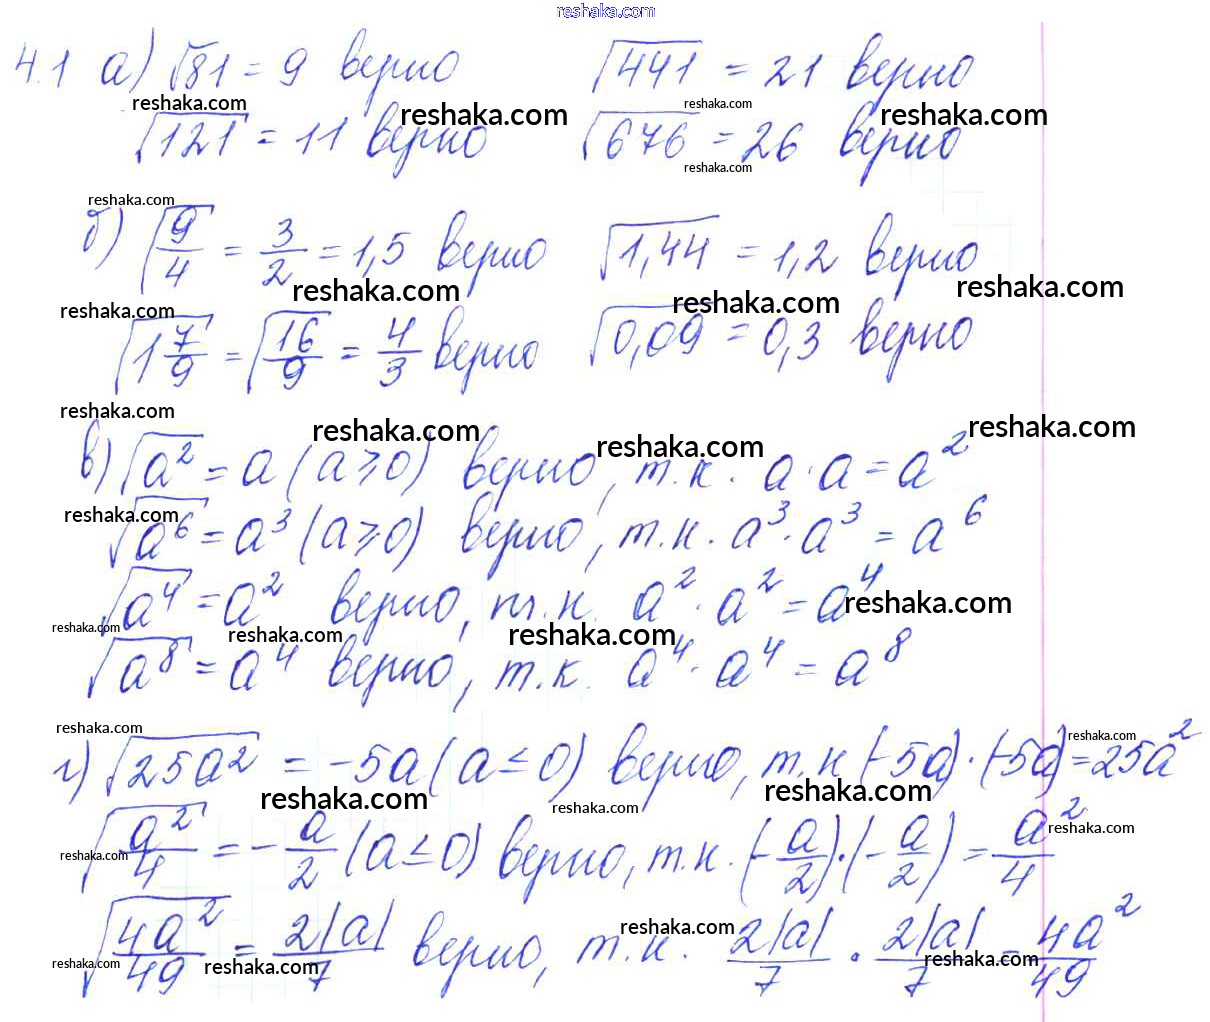 reshaka.com
4.1 а) √81 = 9 верно √441 = 21 верно
reshaka.com reshaka.com reshaka.com reshaka.com
√121 = 11 верно √676 = 26 верно
reshaka.com
reshaka.com
б) √(9/4) = 3/2 = 1,5 верно √1,44 = 1,2 верно
reshaka.com reshaka.com reshaka.com
reshaka.com
√(1 7/9) = √(16/9) = 4/3 верно √0,09 = 0,3 верно
reshaka.com
reshaka.com reshaka.com reshaka.com
в) √a² = a (a ≥ 0) верно, т.к. a · a = a²
reshaka.com
√a⁶ = a³ (a ≥ 0) верно, т.к. a³ · a³ = a⁶
√a⁴ = a² верно, т.к. a² · a² = a⁴
reshaka.com
reshaka.com reshaka.com reshaka.com
√a⁸ = a⁴ верно, т.к. a⁴ · a⁴ = a⁸
reshaka.com reshaka.com
г) √25a² = -5a (a ≤ 0) верно, т.к (-5a) · (-5a) = 25a²
reshaka.com reshaka.com reshaka.com
reshaka.com
√(a²/4) = -a/2 (a ≤ 0) верно, т.к. (-a/2) · (-a/2) = a²/4
reshaka.com
reshaka.com
√(4a²/49) = 2|a|/7 верно, т.к. 2|a|/7 · 2|a|/7 = 4a²/49
reshaka.com reshaka.com reshaka.com